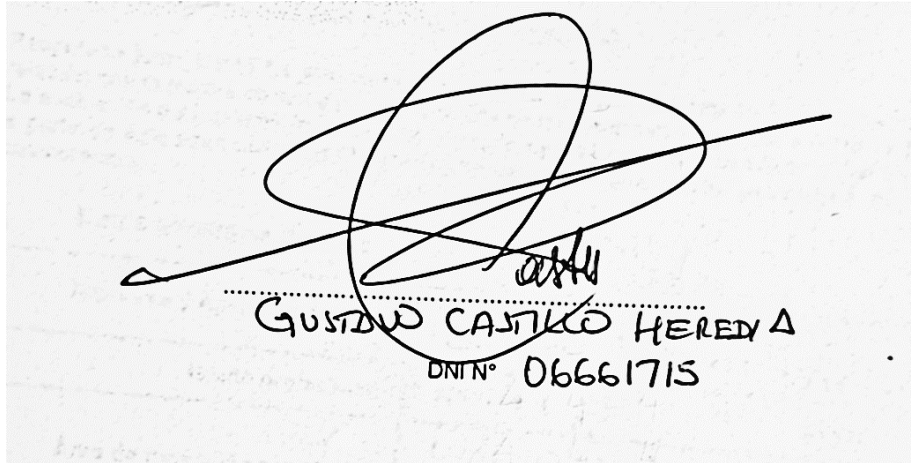 GUSTAVO CASTILLO HEREDIA
DNI N° 06661715